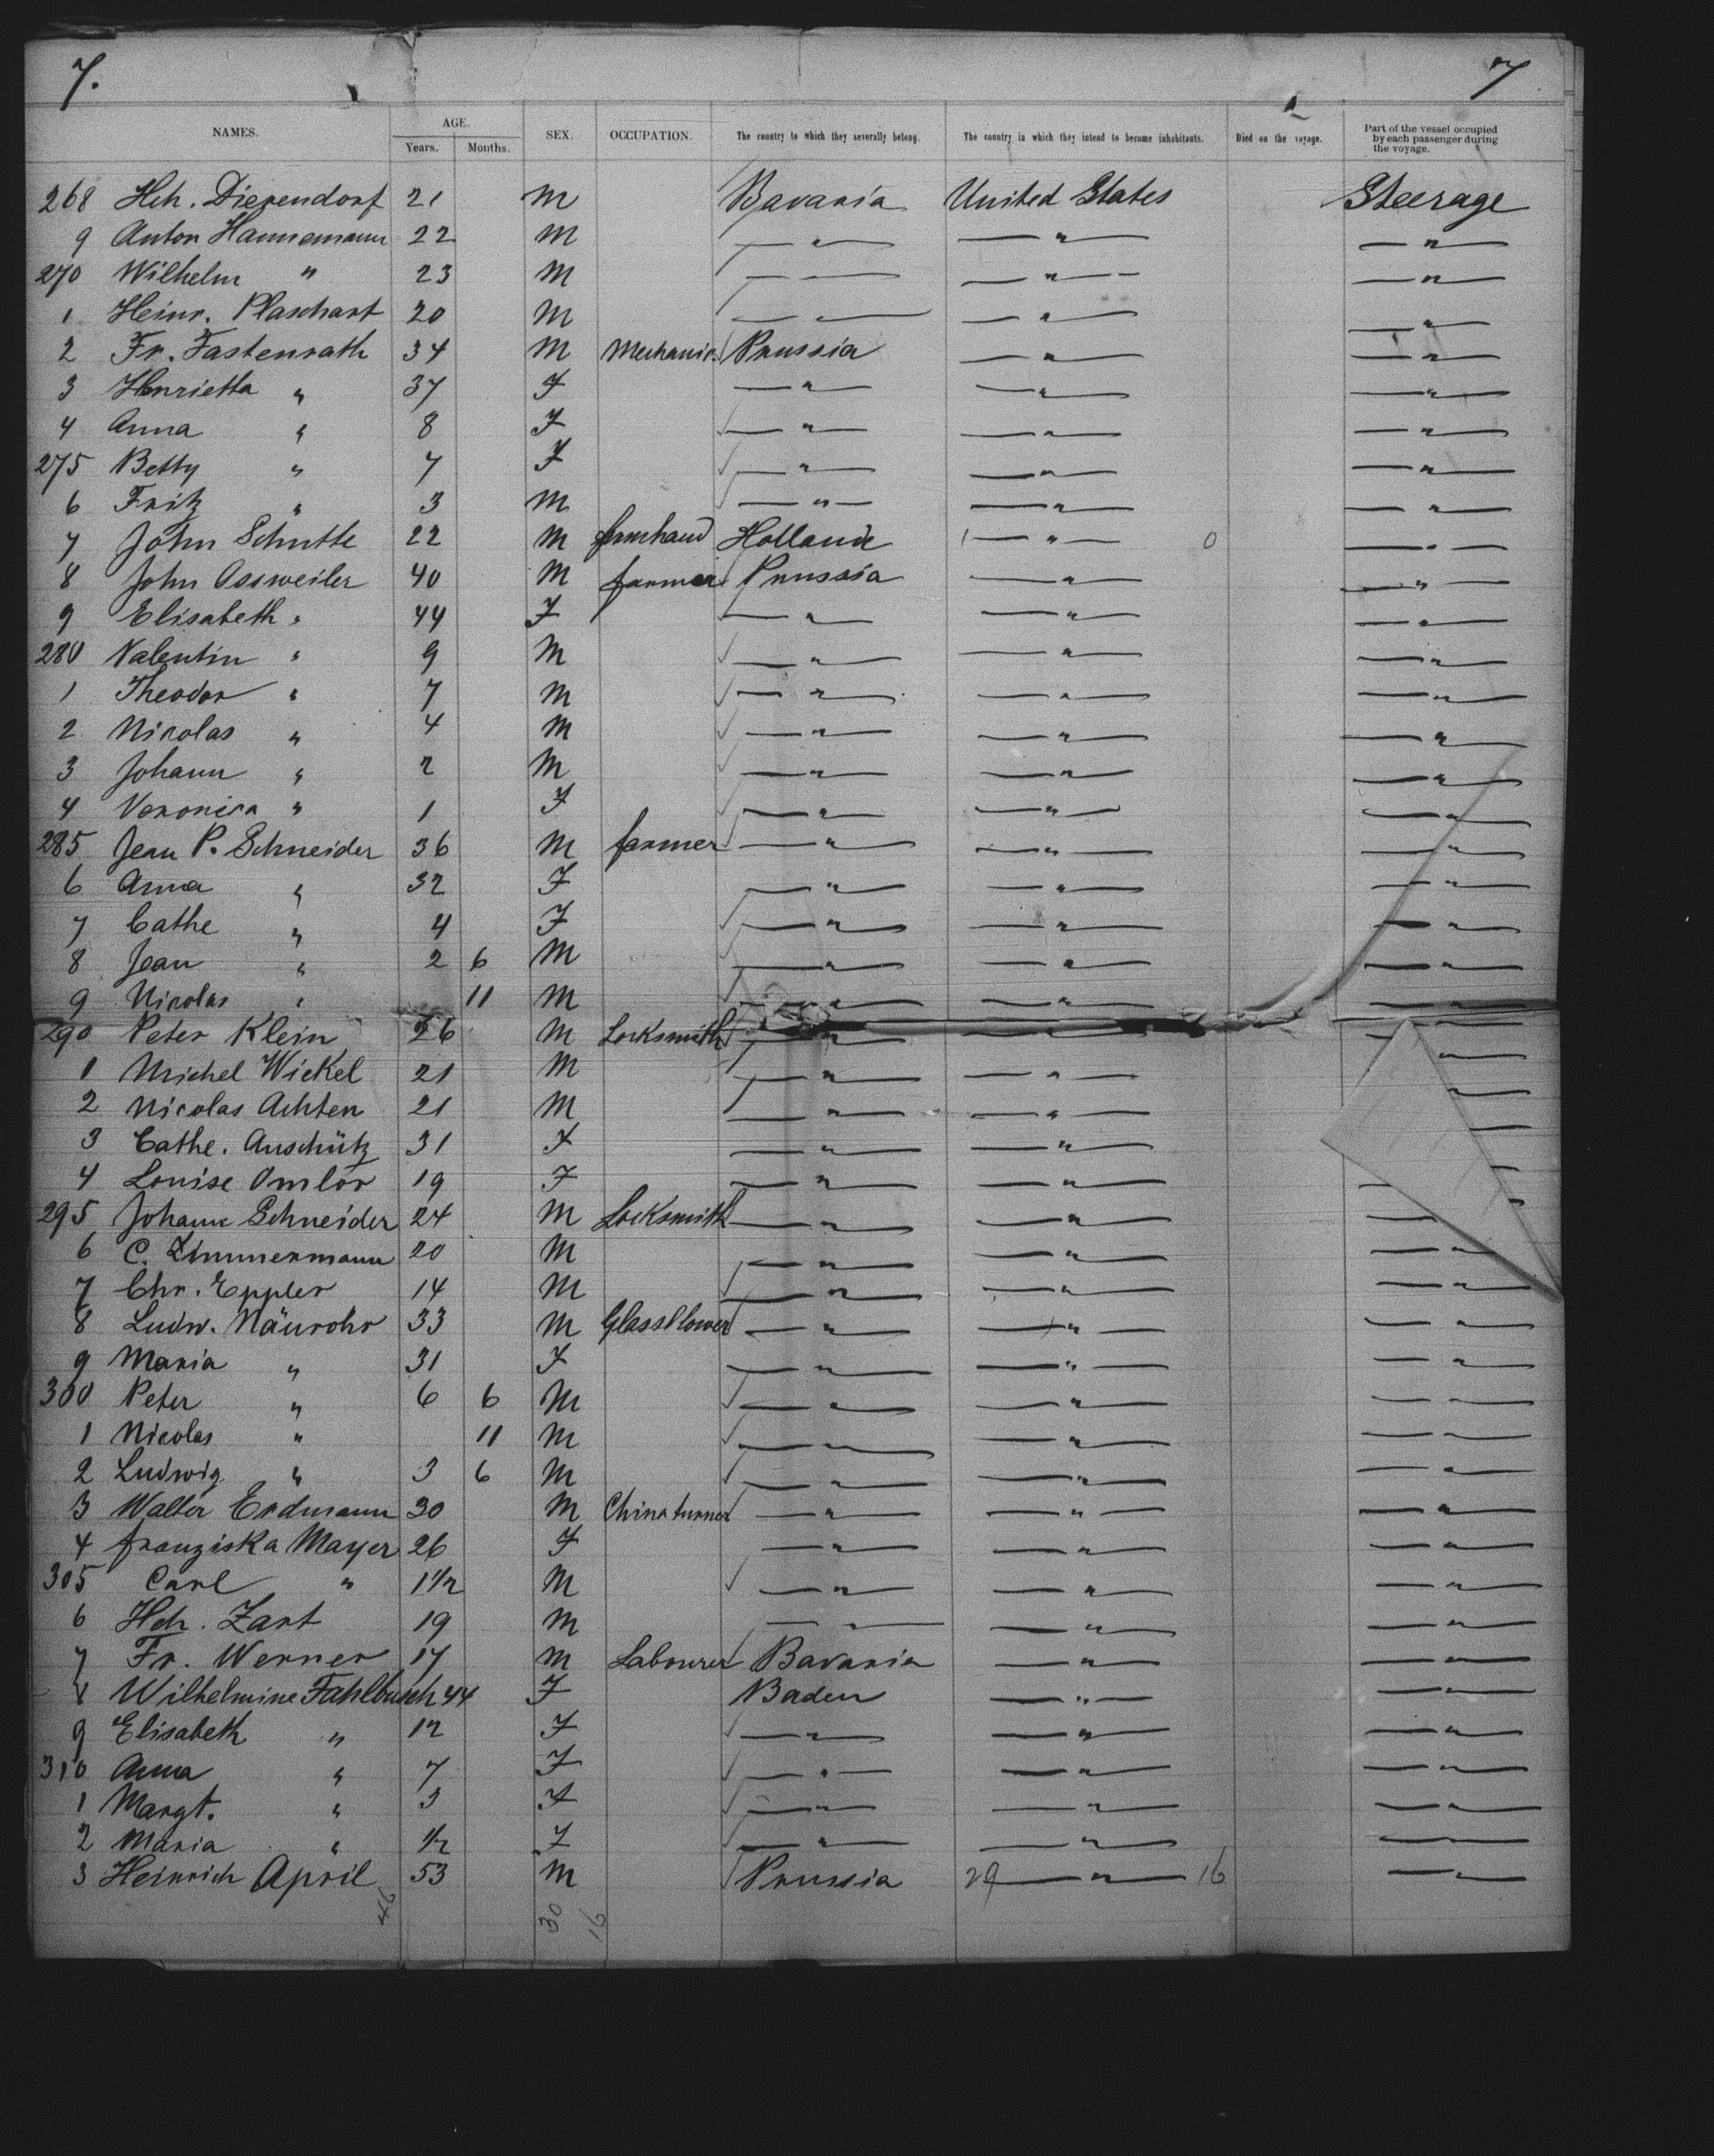 7. 7
NAMES. AGE. Years. Months. SEX. OCCUPATION. The country to which they severally belong. The country in which they intend to become inhabitants. Died on the voyage. Part of the vessel occupied by each passenger during the voyage.
268 Hch. Dierendorf 21 M Bavaria United States Steerage
9 Anton Hannemann 22 M — " — — " — — " —
270 Wilhelm " 23 M — — — " — — " —
1 Heinr. Plaschart 20 M — — — " — — " —
2 Fr. Fastenrath 34 M Mechanic Prussia — " — — " —
3 Henrietta " 37 F — " — — " — — " —
4 Anna " 8 F — " — — " — — " —
275 Betty " 7 F — " — — " — — " —
6 Fritz " 3 M — " — — " — — " —
7 John Schutte 22 M farmhand Holland — " — 0 — " —
8 John Assweiler 40 M farmer Prussia — " — — " —
9 Elisabeth " 44 F — " — — " — — " —
280 Valentin " 9 M — " — — " — — " —
1 Theodor " 7 M — " — — " — — " —
2 Nicolas " 4 M — " — — " — — " —
3 Johann " 2 M — " — — " — — " —
4 Veronica " 1 F — " — — " — — " —
285 Jean P. Schneider 36 M farmer — " — — " — — " —
6 Anna " 32 F — " — — " — — " —
7 Cathe " 4 F — " — — " — — " —
8 Jean " 2 6 M — " — — " — — " —
9 Nicolas " 11 M — " — — " — — " —
290 Peter Klein 26 M Locksmith — " — — " —
1 Michel Wickel 21 M — " — — " — " —
2 Nicolas Achten 21 M — " — — " — " —
3 Cathe. Anschütz 31 F — " — — " — —
4 Louise Omlor 19 F — " — — " — —
295 Johann Schneider 24 M Locksmith — " — — " —
6 C. Zimmermann 20 M — " — — " — — "
7 Chr. Eppler 14 M — " — — " — — " —
8 Ludw. Näurohr 33 M Glassblower — " — — " — — " —
9 Maria " 31 F — " — — " — — " —
300 Peter " 6 6 M — " — — " — — —
1 Nicolas " 11 M — " — — " — — " —
2 Ludwig " 3 6 M — " — — " — — " —
3 Walter Erdmann 30 M China turner — " — — " — — " —
4 Franziska Mayer 26 F — " — — " — — " —
305 Carl " 1 1/2 M — " — — " — — " —
6 Hch. Zart 19 M — " — — " — — " —
7 Fr. Werner 17 M Labourer Bavaria — " — — " —
8 Wilhelmine Fahlbusch 44 F Baden — " — — " —
9 Elisabeth " 12 F — " — — " — — " —
310 Anna " 7 F — " — — " — — " —
1 Margt. " 3 F — " — — " — — " —
2 Maria " 1/2 F — " — — " — — —
3 Heinrich April 53 M Prussia 29 — " — 16 — " —
30 16